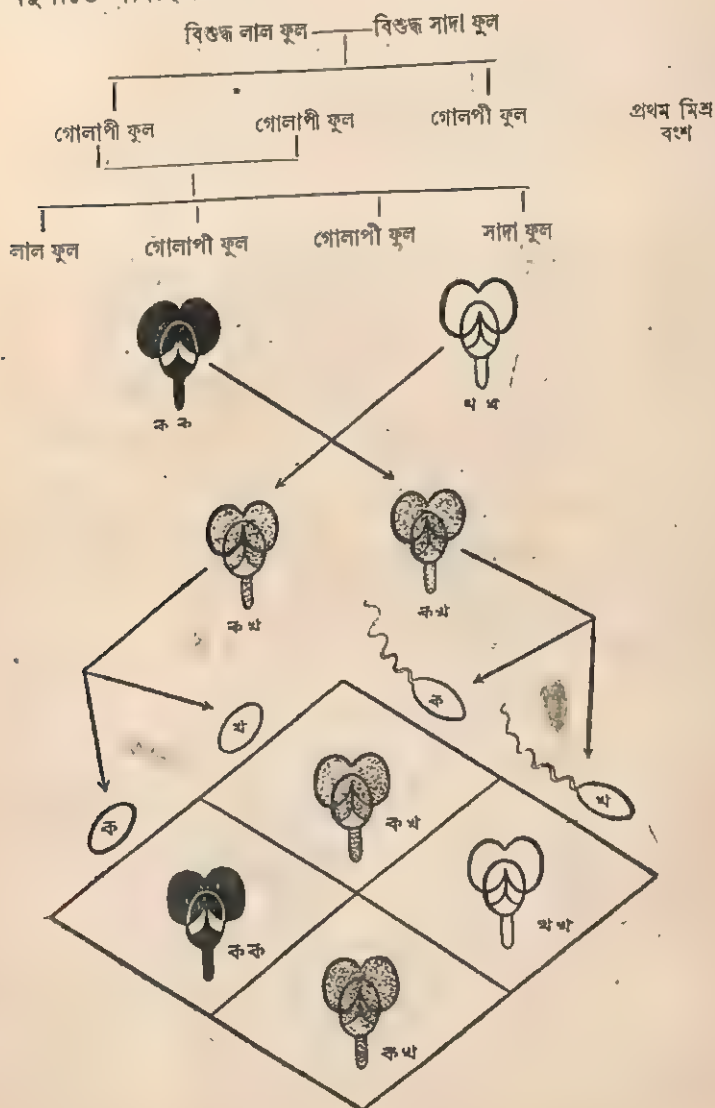 বিশুদ্ধ লাল ফুল বিশুদ্ধ সাদা ফুল
গোলাপী ফুল গোলাপী ফুল গোলপী ফুল প্রথম মিশ্র
বংশ
লাল ফুল গোলাপী ফুল গোলাপী ফুল সাদা ফুল
ক ক খ খ
ক খ ক খ
খ ক
ক খ
ক খ
ক ক খ খ
ক খ